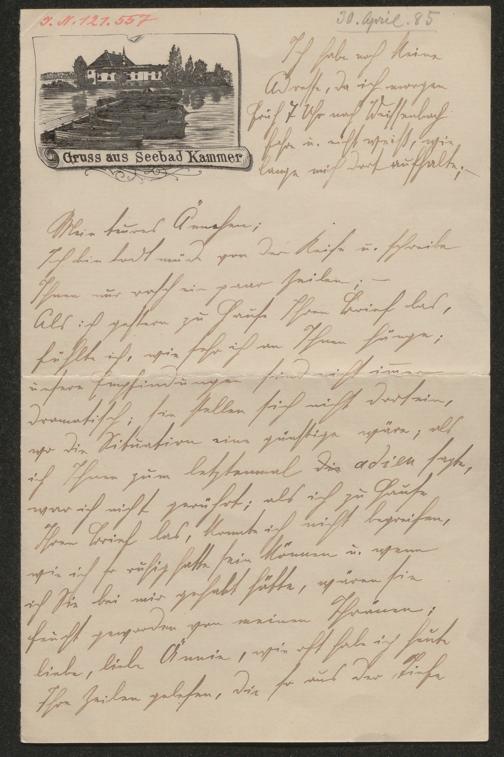 J. N. 121.557
30. April. 85
Gruss aus Seebad Kammer
Ich habe noch keine
Adresse, da ich morgen
früh 7 Uhr nach Weissenbach
fahre u. nicht weiß, wie
lange mich dort aufhalte; –
Mein teures Ännchen;
Ich bin todt müde von der Reise u. schreibe
Ihnen nur rasch ein paar Zeilen; –
Als ich gestern zu Hause Ihren Brief las,
fühlte ich, wie sehr ich an Ihnen hänge;
unsere Empfindungen sind nicht immer
dramatisch; sie stellen sich nicht dort ein,
wo die Situation eine günstige wäre; als
ich Ihnen zum letztenmal die adieu sagte,
war ich nicht gerührt; als ich zu Hause
Ihren Brief las, konnte ich nicht begreifen,
wie ich so ruhig hatte sein können u. wenn
ich Sie bei mir gehabt hätte, wären Sie
feucht geworden von meinen Thränen;
liebe, liebe Ännie, wie oft habe ich heute
Ihre Zeilen gelesen, die so aus der Tiefe